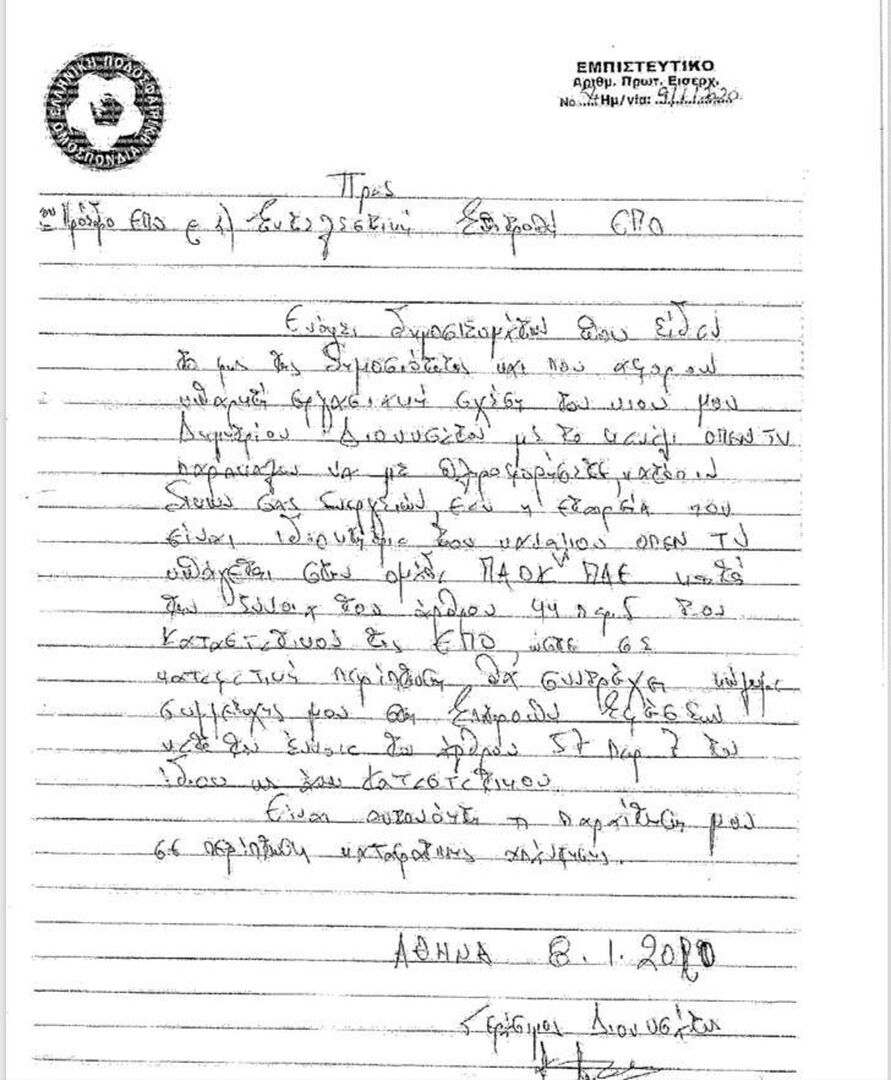 ΕΛΛΗΝΙΚΗ ΠΟΔΟΣΦΑΙΡΙΚΗ ΟΜΟΣΠΟΝΔΙΑ
ΕΜΠΙΣΤΕΥΤΙΚΟ
Αριθμ. Πρωτ. Εισερχ.
Νο Ημ/νία: 9/1/2020
Προς
Πρόεδρο ΕΠΟ Εκτελεστική Επιτροπή ΕΠΟ
Ενόψει δημοσιευμάτων που είδαν
το φως της δημοσιότητας και που αφορούν
υπαρκτή εργασιακή σχέση του υιού μου
Δημητρίου Διονυσάτου με το κανάλι OPEN TV
παρακαλώ να με πληροφορήσετε, κατόπιν
δικών σας ενεργειών, εάν η εταιρεία που
είναι ιδιοκτήτης του καναλιού OPEN TV
υπάγεται στον όμιλο ΠΑΟΚ ΠΑΕ κατά
την έννοια του άρθρου 44 παρ 5 του
Καταστατικού της ΕΠΟ, ώστε σε
καταφατική περίπτωση θα συντρέχει κώλυμα
συμμετοχής μου στη Επιτροπή Εφέσεων
κατά την έννοια του άρθρου 57 παρ 7 του
ίδιου ως άνω Καταστατικού.
Είναι αυτονόητη η παραίτηση μου
σε περίπτωση καταφατικής απάντησης.
ΑΘΗΝΑ 8.1.2020
Γεράσιμος Διονυσάτος